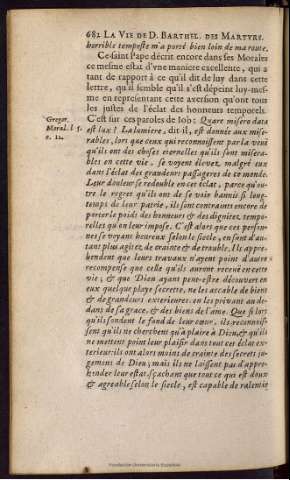 682 LA VIE DE D. BARTHEL. DES MARTYRS.
horrible tempeste m'a porté bien loin de ma route.
Ce saint Pape décrit encore dans ses Morales
ce mesme estat d'vne maniere excellente, qui a
tant de rapport à ce qu'il dit de luy dans cette
lettre, qu'il semble qu'il s'est dépeint luy-mes-
me en representant cette aversion qu'ont tous
les justes de l'éclat des honneurs temporels.
Gregor.
Moral. l. 5.
c. 2.
C'est sur ces paroles de Iob: Quare misero data
est lux? La lumiere, dit-il, est donnée aux mise-
rables, lors que ceux qui reconnoissent par la veuë
qu'ils ont des choses eternelles qu'ils sont misera-
bles en cette vie, se voyent élevez, malgré eux
dans l'éclat des grandeurs passageres de ce monde.
Leur douleur se redouble en cet éclat, parce qu'ou-
tre le regret qu'ils ont de se voir bannis si long-
temps de leur patrie, ils sont contraints encore de
porter le poids des honneurs & des dignitez tempo-
relles qu'on leur impose. C'est alors que ces person-
nes se voyans heureux selon le siecle, en sont d'au-
tant plus agitez de crainte & de trouble. Ils appre-
hendent que leurs travaux n'ayent point d'autre
recompense que celle qu'ils auront receuë en cette
vie; & que Dieu ayant peut-estre découvert en
eux quelque playe secrette, ne les accable de biens
& de grandeurs exterieures, en les privant au de-
dans de sa grace, & des biens de l'ame. Que si lors
qu'ils sondent le fond de leur cœur, ils reconnois-
sent qu'ils ne cherchent qu'à plaire à Dieu, & qu'ils
ne mettent point leur plaisir dans tout cet éclat ex-
terieur; ils ont alors moins de crainte des secrets ju-
gemens de Dieu; mais ils ne laissent pas d'appre-
hender leur estat, sçachant que tout ce qui est doux
& agreable selon le siecle, est capable de ralentir
Fundación Universitaria Española